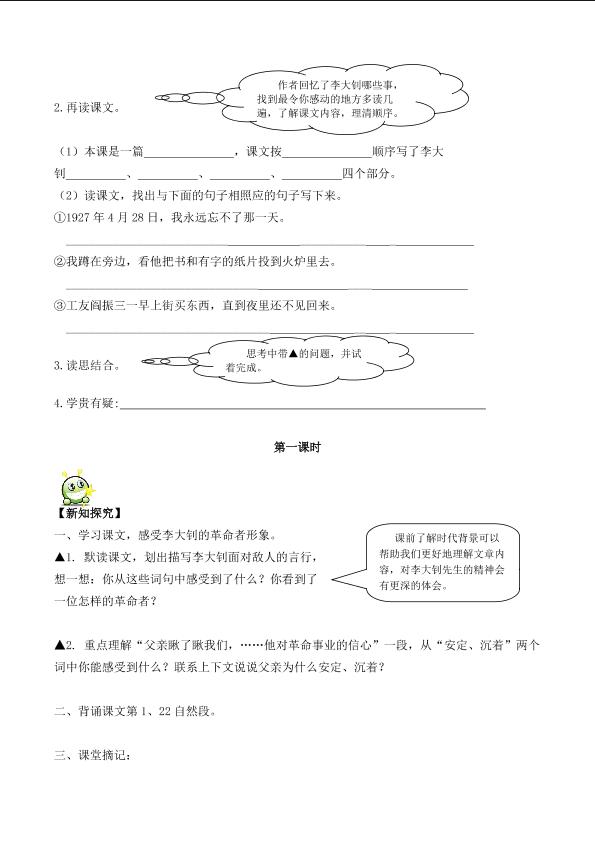 作者回忆了李大钊哪些事，
找到最令你感动的地方多读几
遍，了解课文内容，理清顺序。
2.再读课文。
（1）本课是一篇_______________，课文按_______________顺序写了李大
钊__________、__________、__________、__________四个部分。
（2）读课文，找出与下面的句子相照应的句子写下来。
①1927年4月28日，我永远忘不了那一天。
②我蹲在旁边，看他把书和有字的纸片投到火炉里去。
③工友阎振三一早上街买东西，直到夜里还不见回来。
思考中带▲的问题，并试
着完成。
3.读思结合。
4.学贵有疑:
第一课时
【新知探究】
一、学习课文，感受李大钊的革命者形象。
▲1. 默读课文，划出描写李大钊面对敌人的言行，
想一想：你从这些词句中感受到了什么？你看到了
一位怎样的革命者？
课前了解时代背景可以
帮助我们更好地理解文章内
容，对李大钊先生的精神会
有更深的体会。
▲2. 重点理解“父亲瞅了瞅我们，……他对革命事业的信心”一段，从“安定、沉着”两个
词中你能感受到什么？联系上下文说说父亲为什么安定、沉着？
二、背诵课文第1、22自然段。
三、课堂摘记：